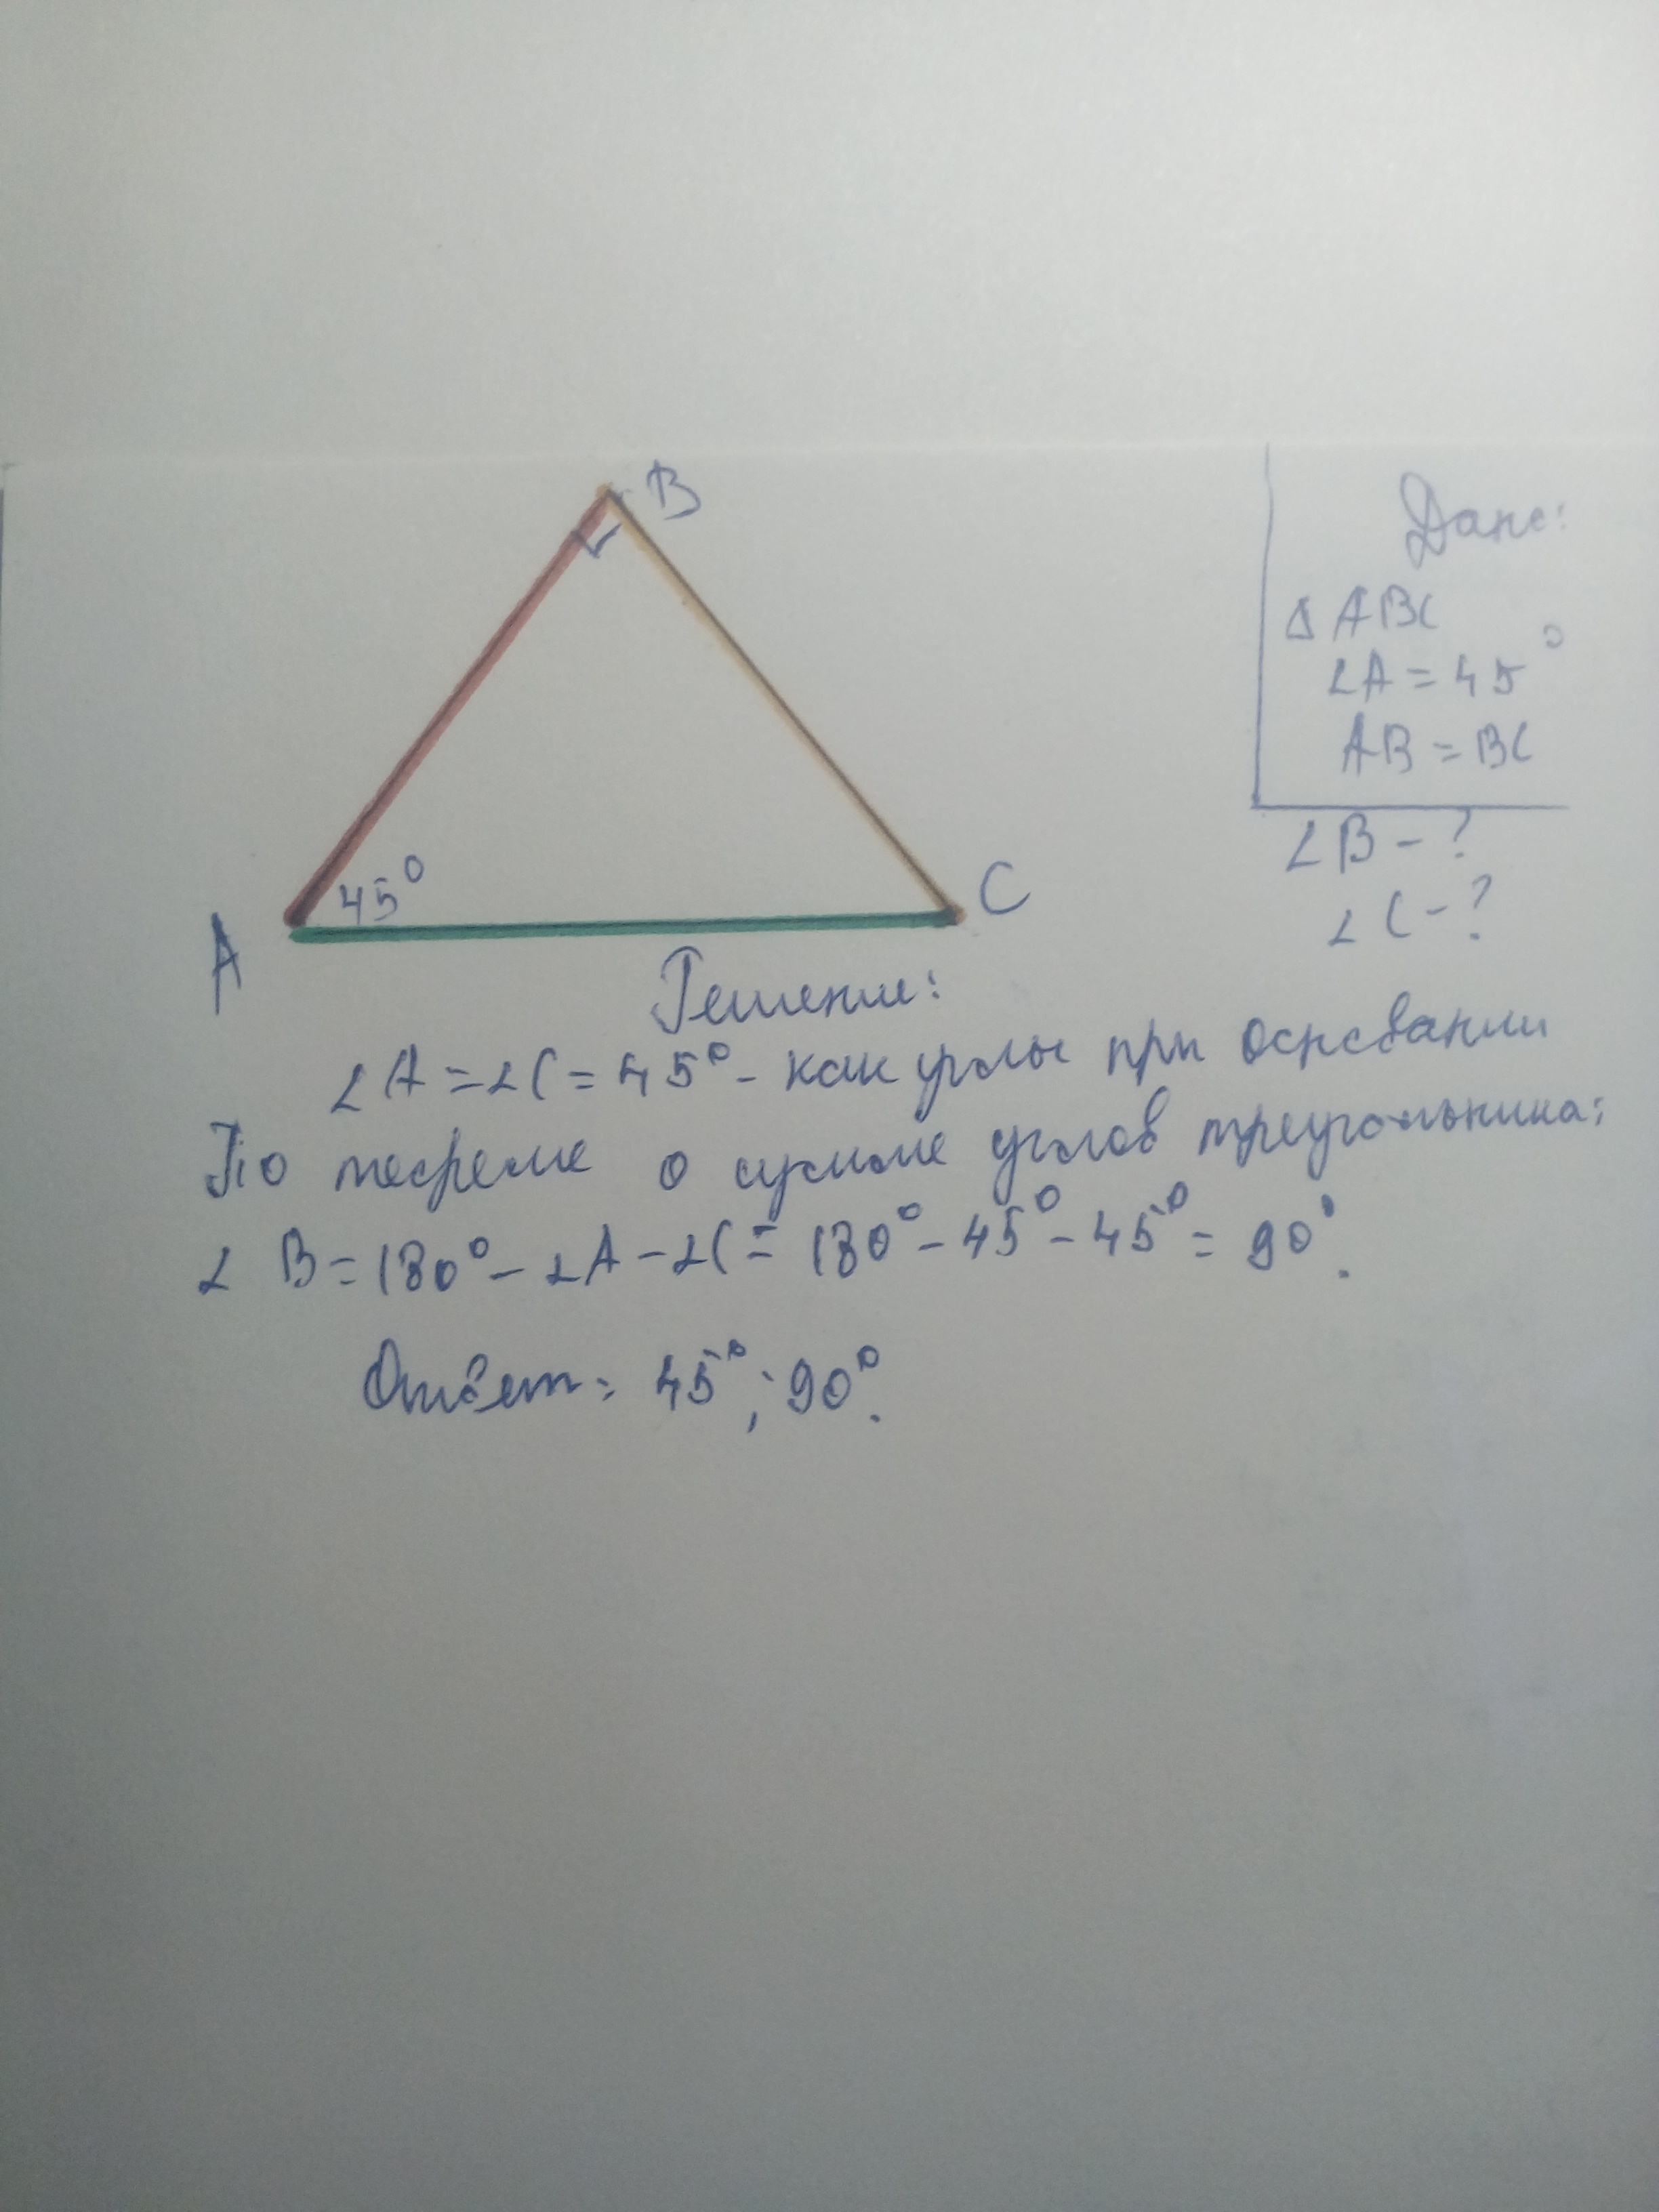 B
Дано:
∆ ABC
∠A = 45°
AB = BC
∠B - ?
∠C - ?
45°
C
A
Решение:
∠A = ∠C = 45° - как углы при основании
По теореме о сумме углов треугольника:
∠ B = 180° - ∠A - ∠C = 180° - 45° - 45° = 90°.
Ответ: 45°; 90°.